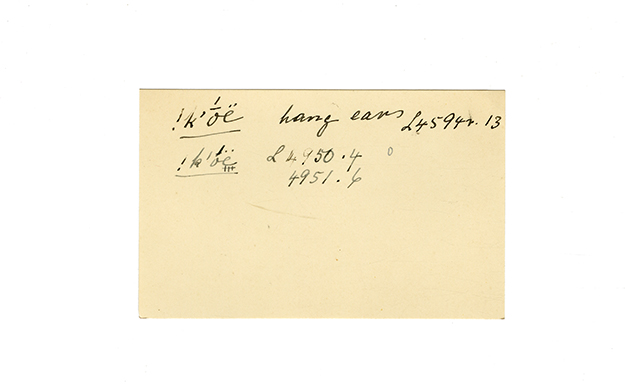 !k'ȯ́ë hang ears L4594r. 13
!k'ȯ́ë L 4950.4
4951.6